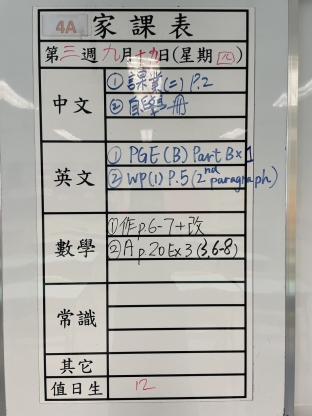 4A 家課表
第三週九月十九日(星期四)
中文
① 課業(二) P.2
② 自學冊
英文
① PGE(B) Part B×1
② WP(1) P.5 (2nd paragraph)
數學
①作p.6-7+改
②A p.20 Ex 3 (3,6-8)
常識
其它
值日生 12